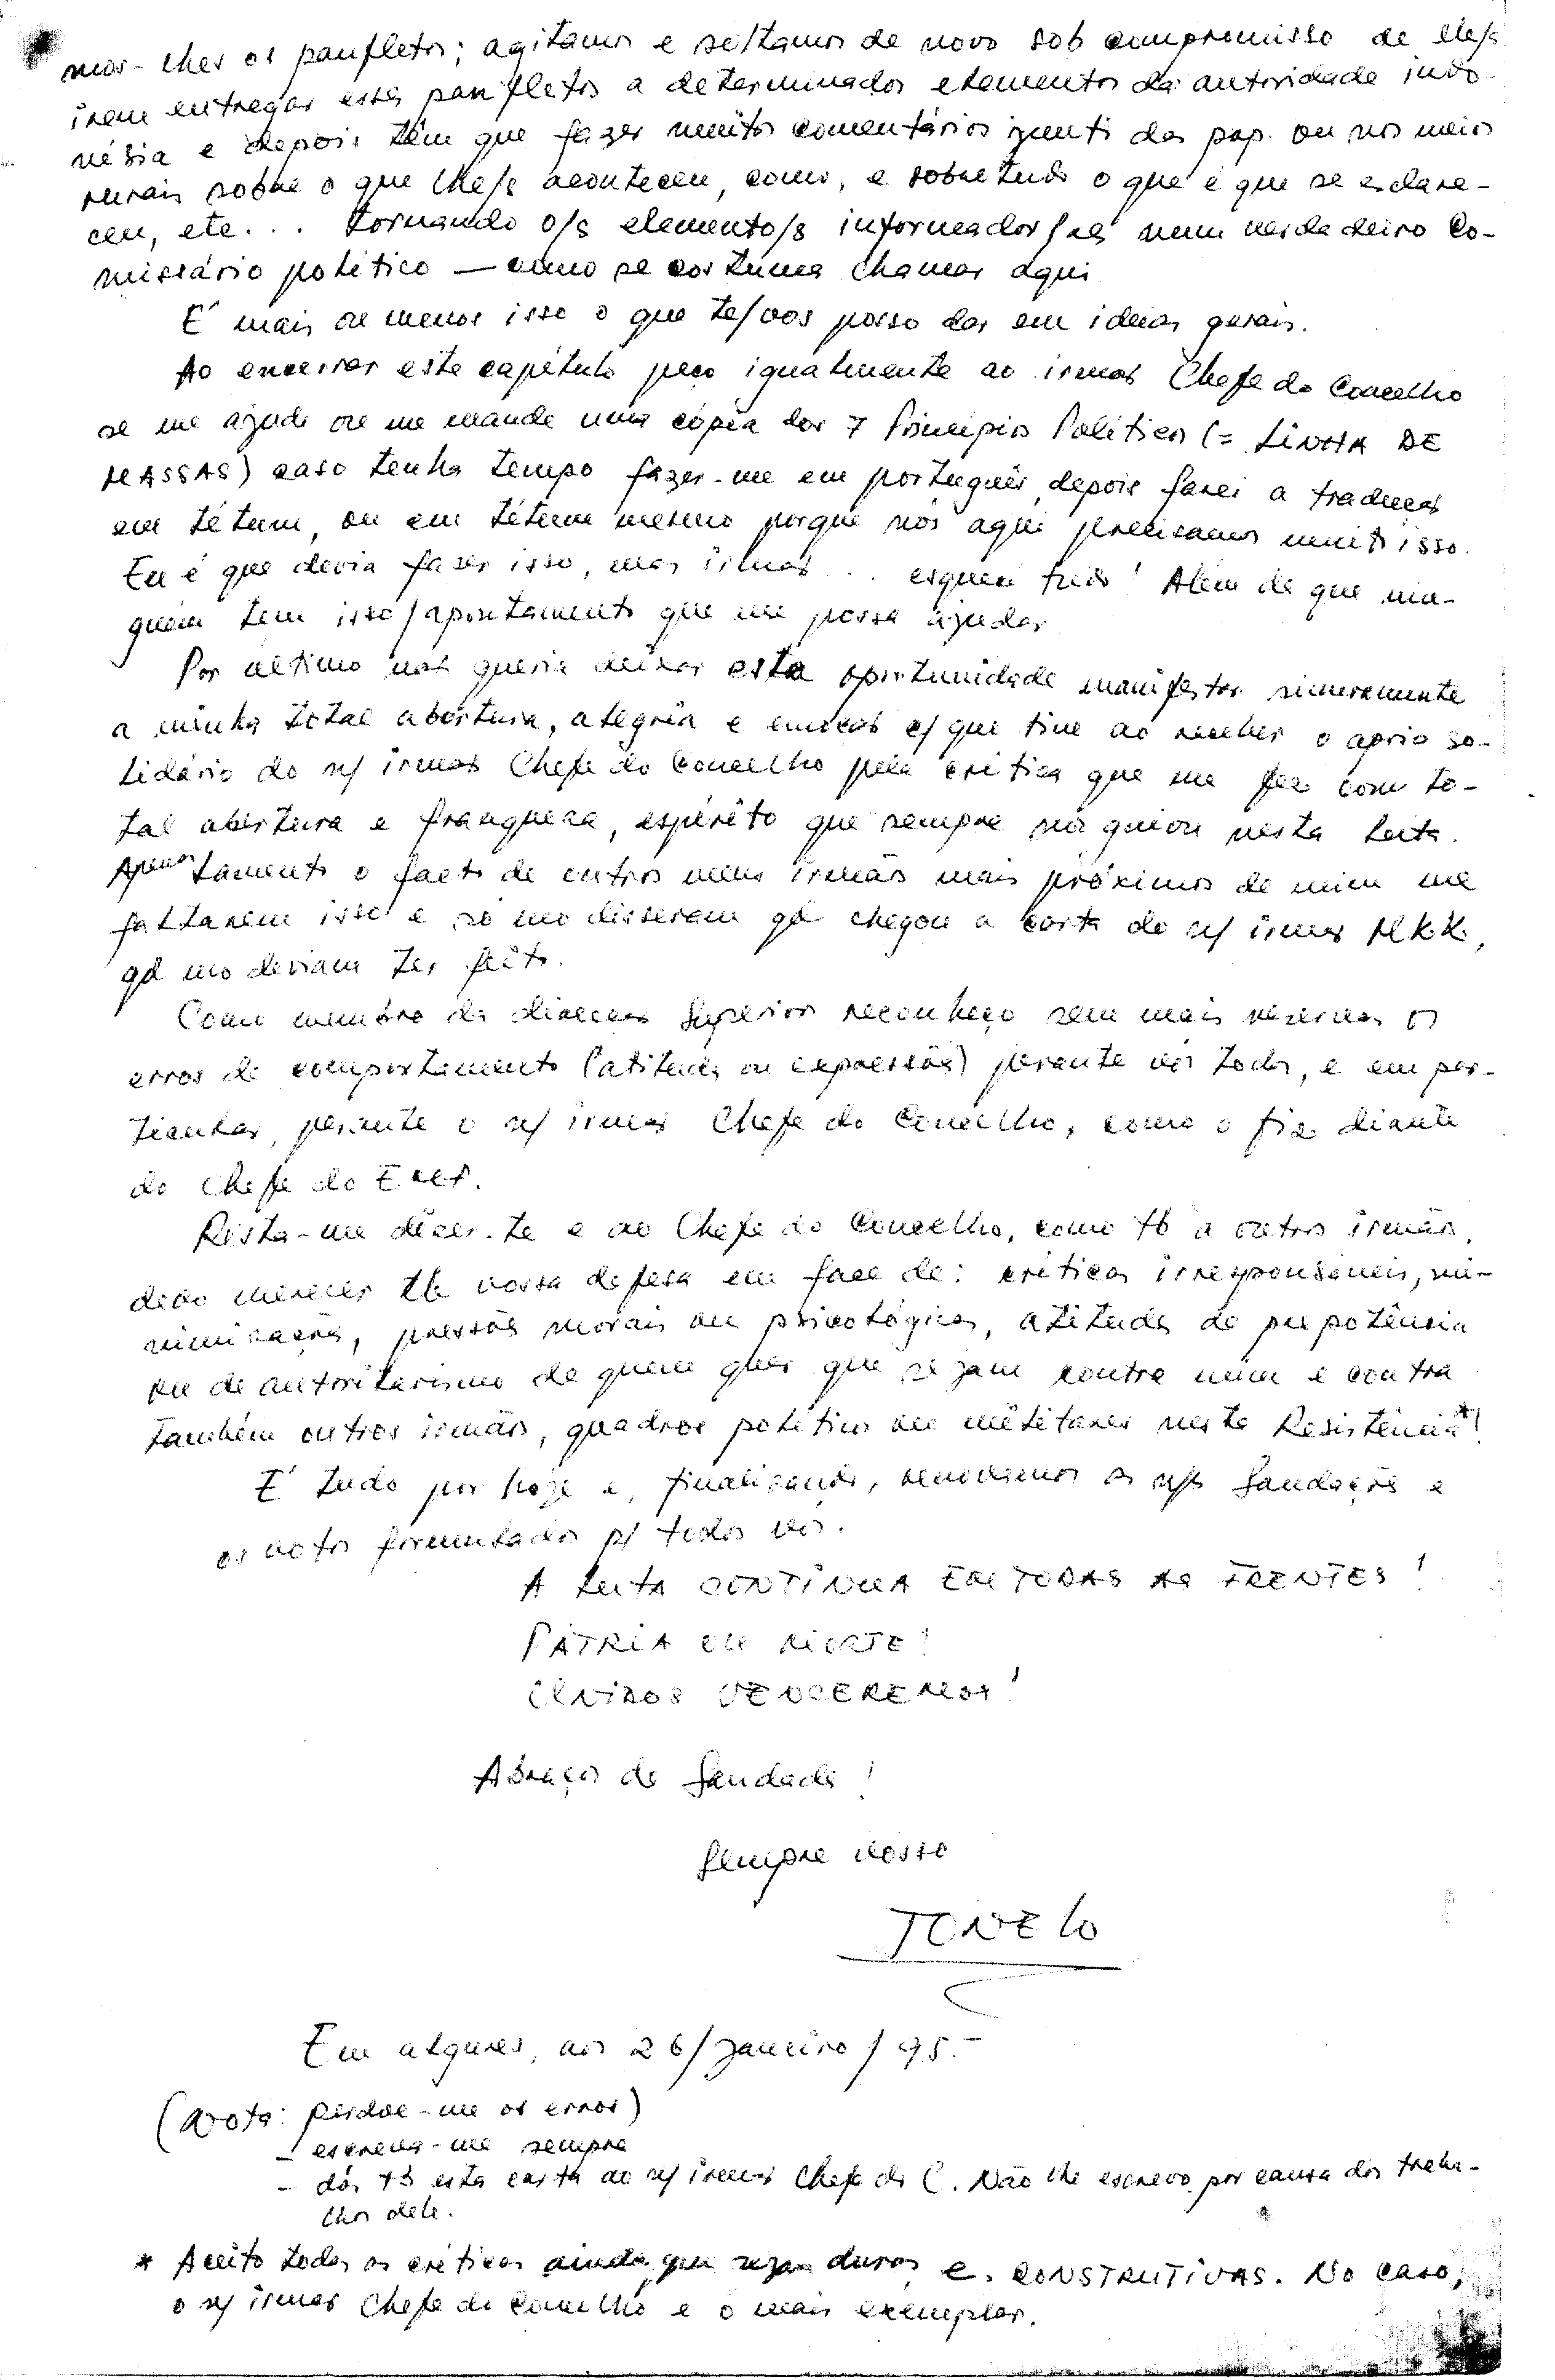 mos-lhes os panfletos; agitamos e soltamos de novo sob compromisso de ele/s
irem entregar esses panfletos a determinados elementos da autoridade indo-
nésia e depois têm que fazer muitos comentários junto das pop. ou nos meios
rurais sobre o que lhe/s aconteceu, como, e sobretudo o que é que se esclare-
ceu, etc... tornando o/s elemento/s informador/es num verdadeiro Co-
missário político — como se costuma chamar aqui
É mais ou menos isso o que te/vos posso dar em ideias gerais.
Ao encerrar este capítulo peço igualmente ao irmão Chefe do Concelho
se me ajude ou me mande uma cópia dos 7 Princípios Políticos (= LINHA DE
MASSAS) caso tenha tempo fazer-me em português, depois farei a tradução
em tétum, ou em tétum mesmo porque nós aqui precisamos muito isso.
Eu é que devia fazer isso, mas irmão... esqueci tudo! Além de que nin-
guém tem isso/apontamento que me possa ajudar
Por último não queria deixar esta oportunidade manifestar sinceramente
a minha total abertura, alegria e emoção c/ que tive ao receber o apoio so-
lidário do n/ irmão Chefe do Concelho pela crítica que me fez com to-
tal abertura e franqueza, espírito que sempre nos guiou nesta luta.
Apenas lamento o facto de outros meus irmãos mais próximos de mim me
faltarem isso e só mo disseram qd chegou a carta do n/ irmão M.K.K.,
qd mo deviam ter feito.
Como membro da direcção Superior reconheço sem mais reservas os
erros de comportamento (atitudes ou expressões) perante vós todos, e em par-
ticular, perante o n/ irmão Chefe do Concelho, como o fiz diante
do Chefe do EMCF.
Resta-me dizer-te e ao Chefe do Concelho, como tb a outros irmãos,
devo merecer tb vossa defesa em face de: críticas irresponsáveis, mi-
nimizações, pressões morais ou psicológicas, atitudes de prepotência
ou de autoritarismo de quem quer que sejam contra mim e contra
também outros irmãos, quadros políticos ou militares nesta Resistência*!
É tudo por hoje e, finalizando, renovamos as n/s Saudações e
os votos formulados p/ todos vós.
A LUTA CONTINUA EM TODAS AS FRENTES!
PÁTRIA OU MORTE!
UNIDOS VENCEREMOS!
Abraços de Saudade!
Sempre vosso
TONELO
Em algures, aos 26/Janeiro/95.-
(Nota: Perdoe-me os erros)
- escreva-me sempre
- dás tb esta carta ao n/ irmão Chefe do C. Não lhe escrevo por causa dos traba-
lhos dele.
* Aceito todas as críticas ainda que sejam duras e. CONSTRUTIVAS. No caso,
o n/ irmão Chefe do Concelho é o mais exemplar.